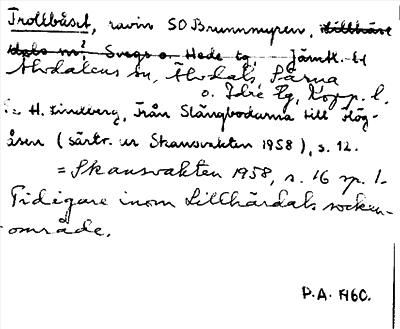 Trollbåset, ravin SO Brunnmyren, Lillhär-
dals sn, Svegs o. Hede tg, Jämtl. l.
Älvdalens sn, Älvdals, Särna
o. Idre tg, Kopp. l.
H. Lindberg, Från Slängbodarna till Hög-
åsen (särtr. ur Skansvakten 1958), s. 12.
= Skansvakten 1958, s. 16 sp. 1.
Tidigare inom Lillhärdals socken-
område.
P.A. 1960.